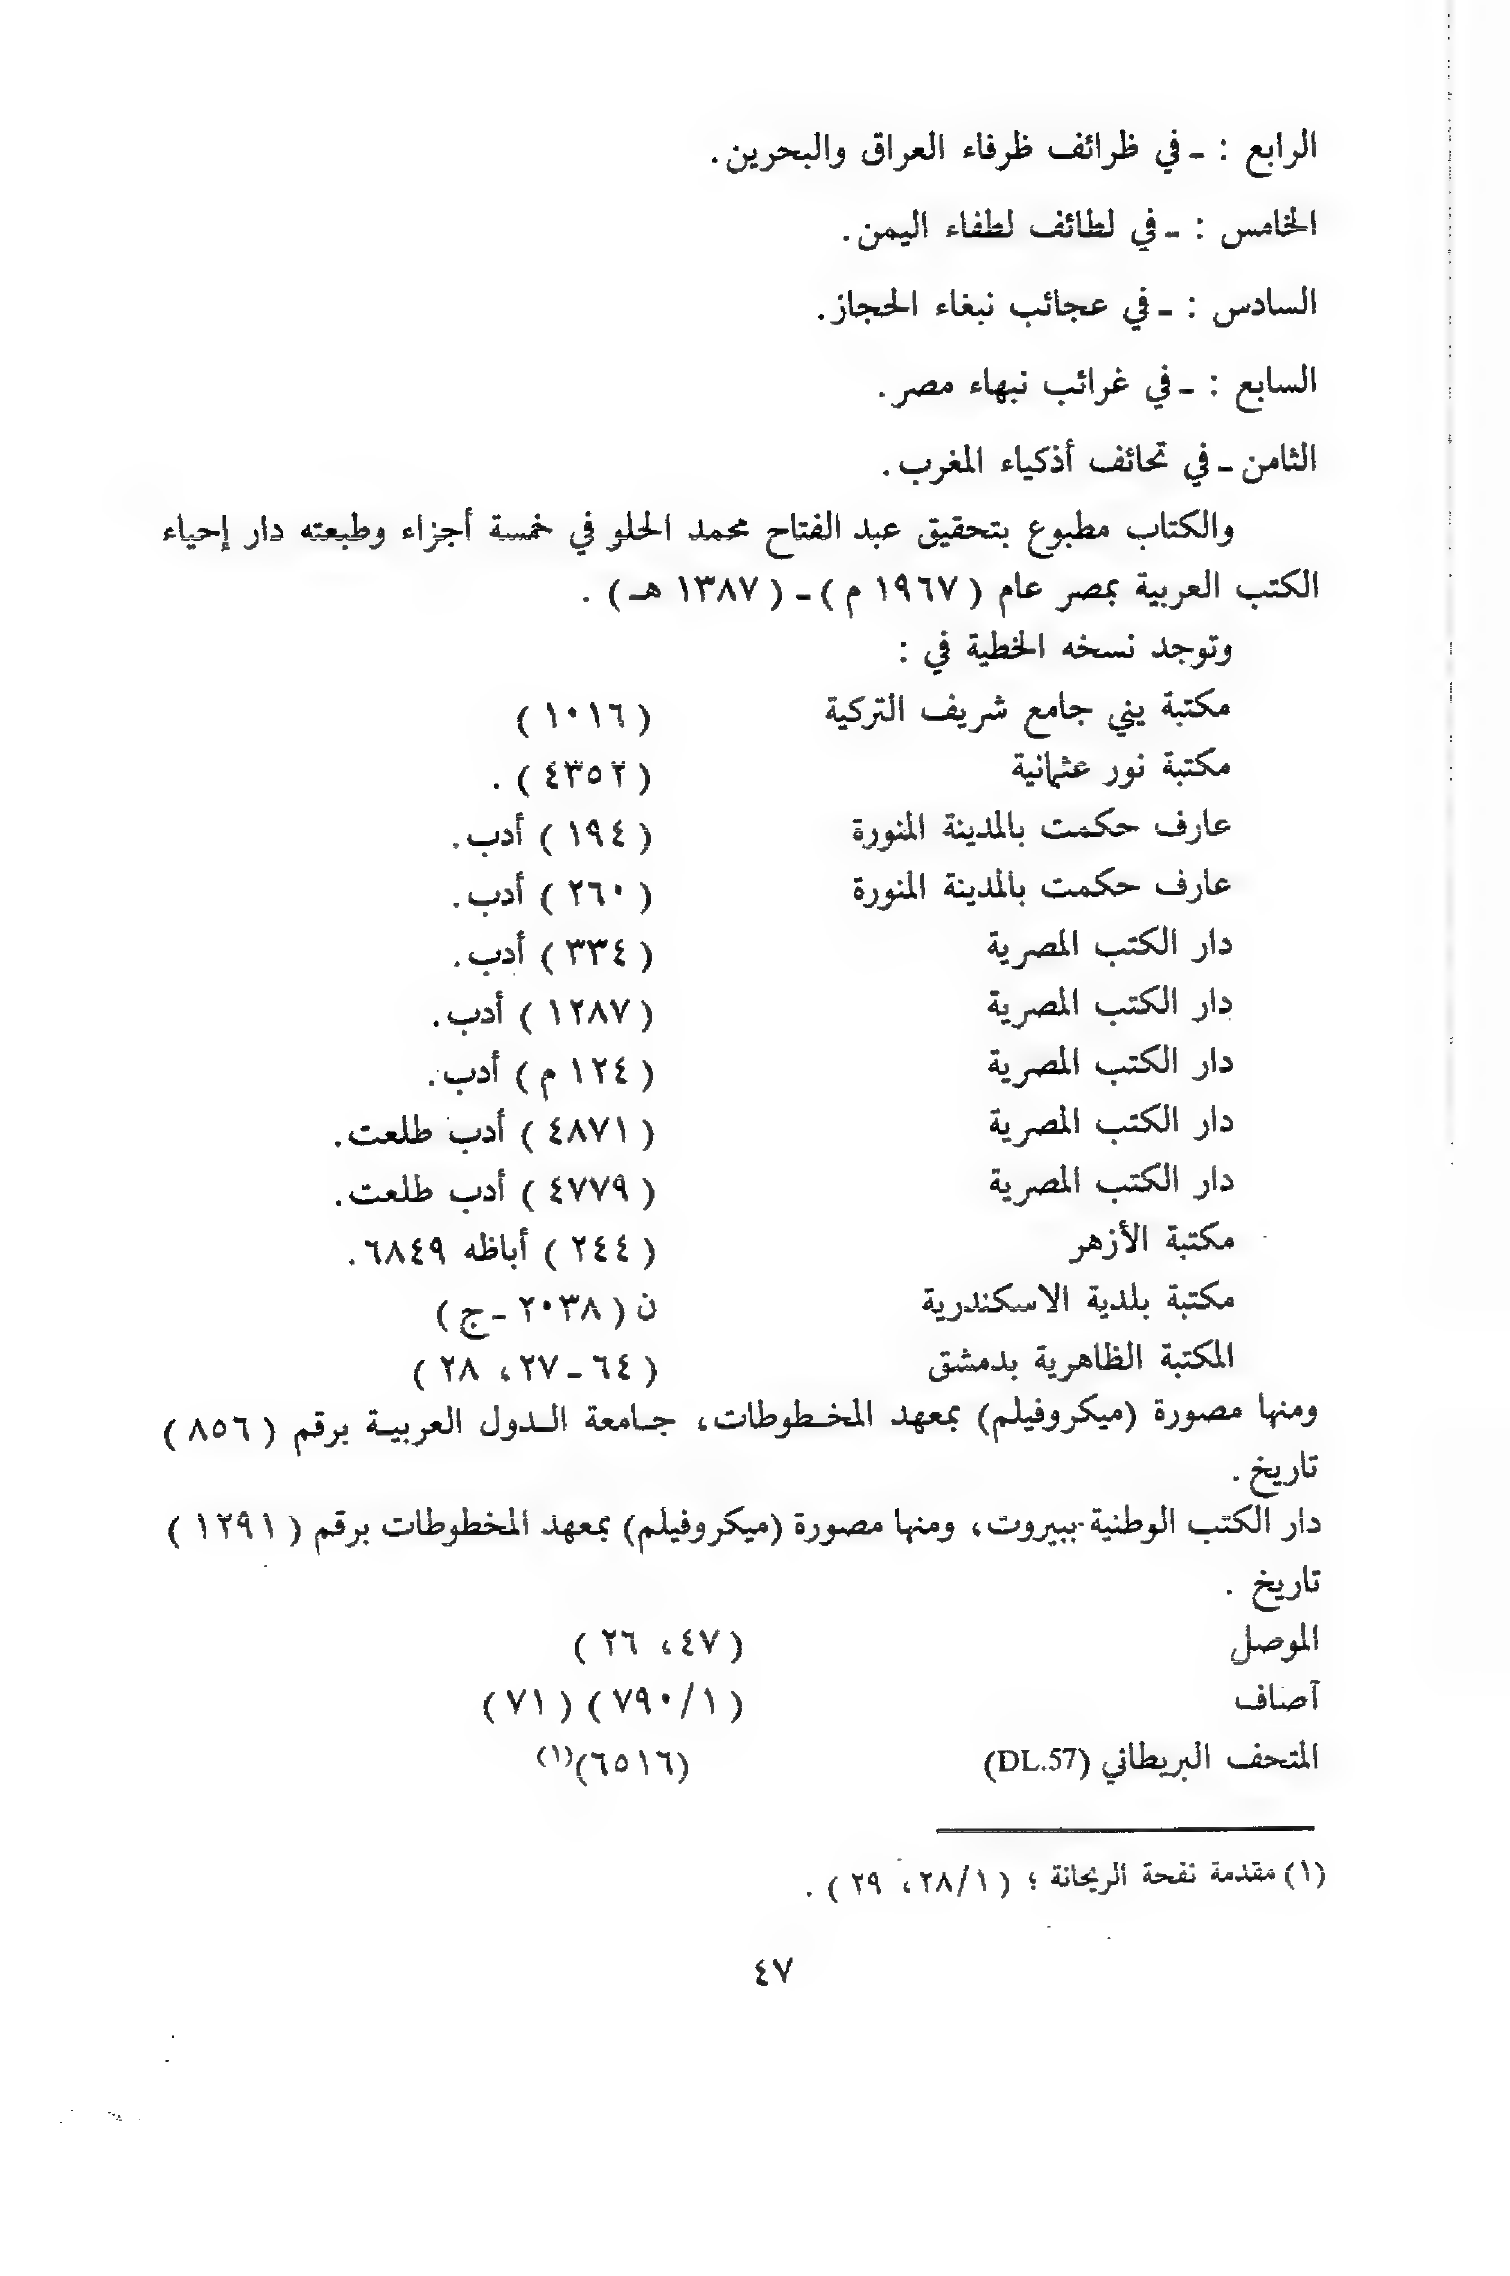 الرابع : ـ في ظرائف ظرفاء العراق والبحرين.
الخامس : ـ في لطائف لطفاء اليمن.
السادس : ـ في عجائب نبغاء الحجاز.
السابع : ـ في غرائب نبهاء مصر.
الثامن ـ في تحائف أذكياء المغرب.
والكتاب مطبوع بتحقيق عبد الفتاح محمد الحلو في خمسة أجزاء وطبعته دار إحياء
الكتب العربية بمصر عام ( ١٩٦٧ م ) ـ ( ١٣٨٧ هـ ) .
وتوجد نسخه الخطية في :
مكتبة يني جامع شريف التركية ( ١٠١٦ )
مكتبة نور عثمانية ( ٤٣٥٢ ) .
عارف حكمت بالمدينة المنورة ( ١٩٤ ) أدب.
عارف حكمت بالمدينة المنورة ( ٢٦٠ ) أدب.
دار الكتب المصرية ( ٣٣٤ ) أدب.
دار الكتب المصرية ( ١٢٨٧ ) أدب.
دار الكتب المصرية ( ١٢٤ م ) أدب.
دار الكتب المصرية ( ٤٨٧١ ) أدب طلعت.
دار الكتب المصرية ( ٤٧٧٩ ) أدب طلعت.
مكتبة الأزهر ( ٢٤٤ ) أباظه ٦٨٤٩.
مكتبة بلدية الاسكندرية ن ( ٢٠٣٨ ـ ج )
المكتبة الظاهرية بدمشق ( ٦٤ ـ ٢٧، ٢٨ )
ومنها مصورة (ميكروفيلم) بمعهد المخـطوطات، جـامعة الـدول العربيـة برقم ( ٨٥٦ )
تاريخ.
دار الكتب الوطنية ببيروت، ومنها مصورة (ميكروفيلم) بمعهد المخطوطات برقم ( ١٢٩١ )
تاريخ .
الموصل ( ٤٧، ٢٦ )
آصاف ( ٧٩٠/١ ) ( ٧١ )
المتحف البريطاني (DL.57) (٦٥١٦)(١)
(١) مقدمة نفحة الريحانة ؛ ( ٢٨/١، ٢٩ ) .
٤٧